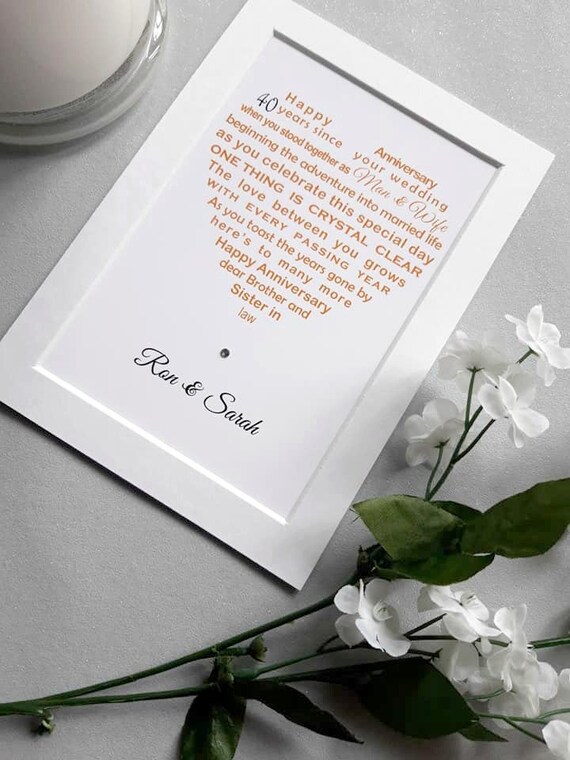 Happy Anniversary
40 years since your wedding
when you stood together as Man & Wife
beginning the adventure into married life
as you celebrate this special day
ONE THING IS CRYSTAL CLEAR
The love between you grows
WITH EVERY PASSING YEAR
As you toast the years gone by
here's to many more
Happy Anniversary
dear Brother and
Sister in
law
Ron & Sarah